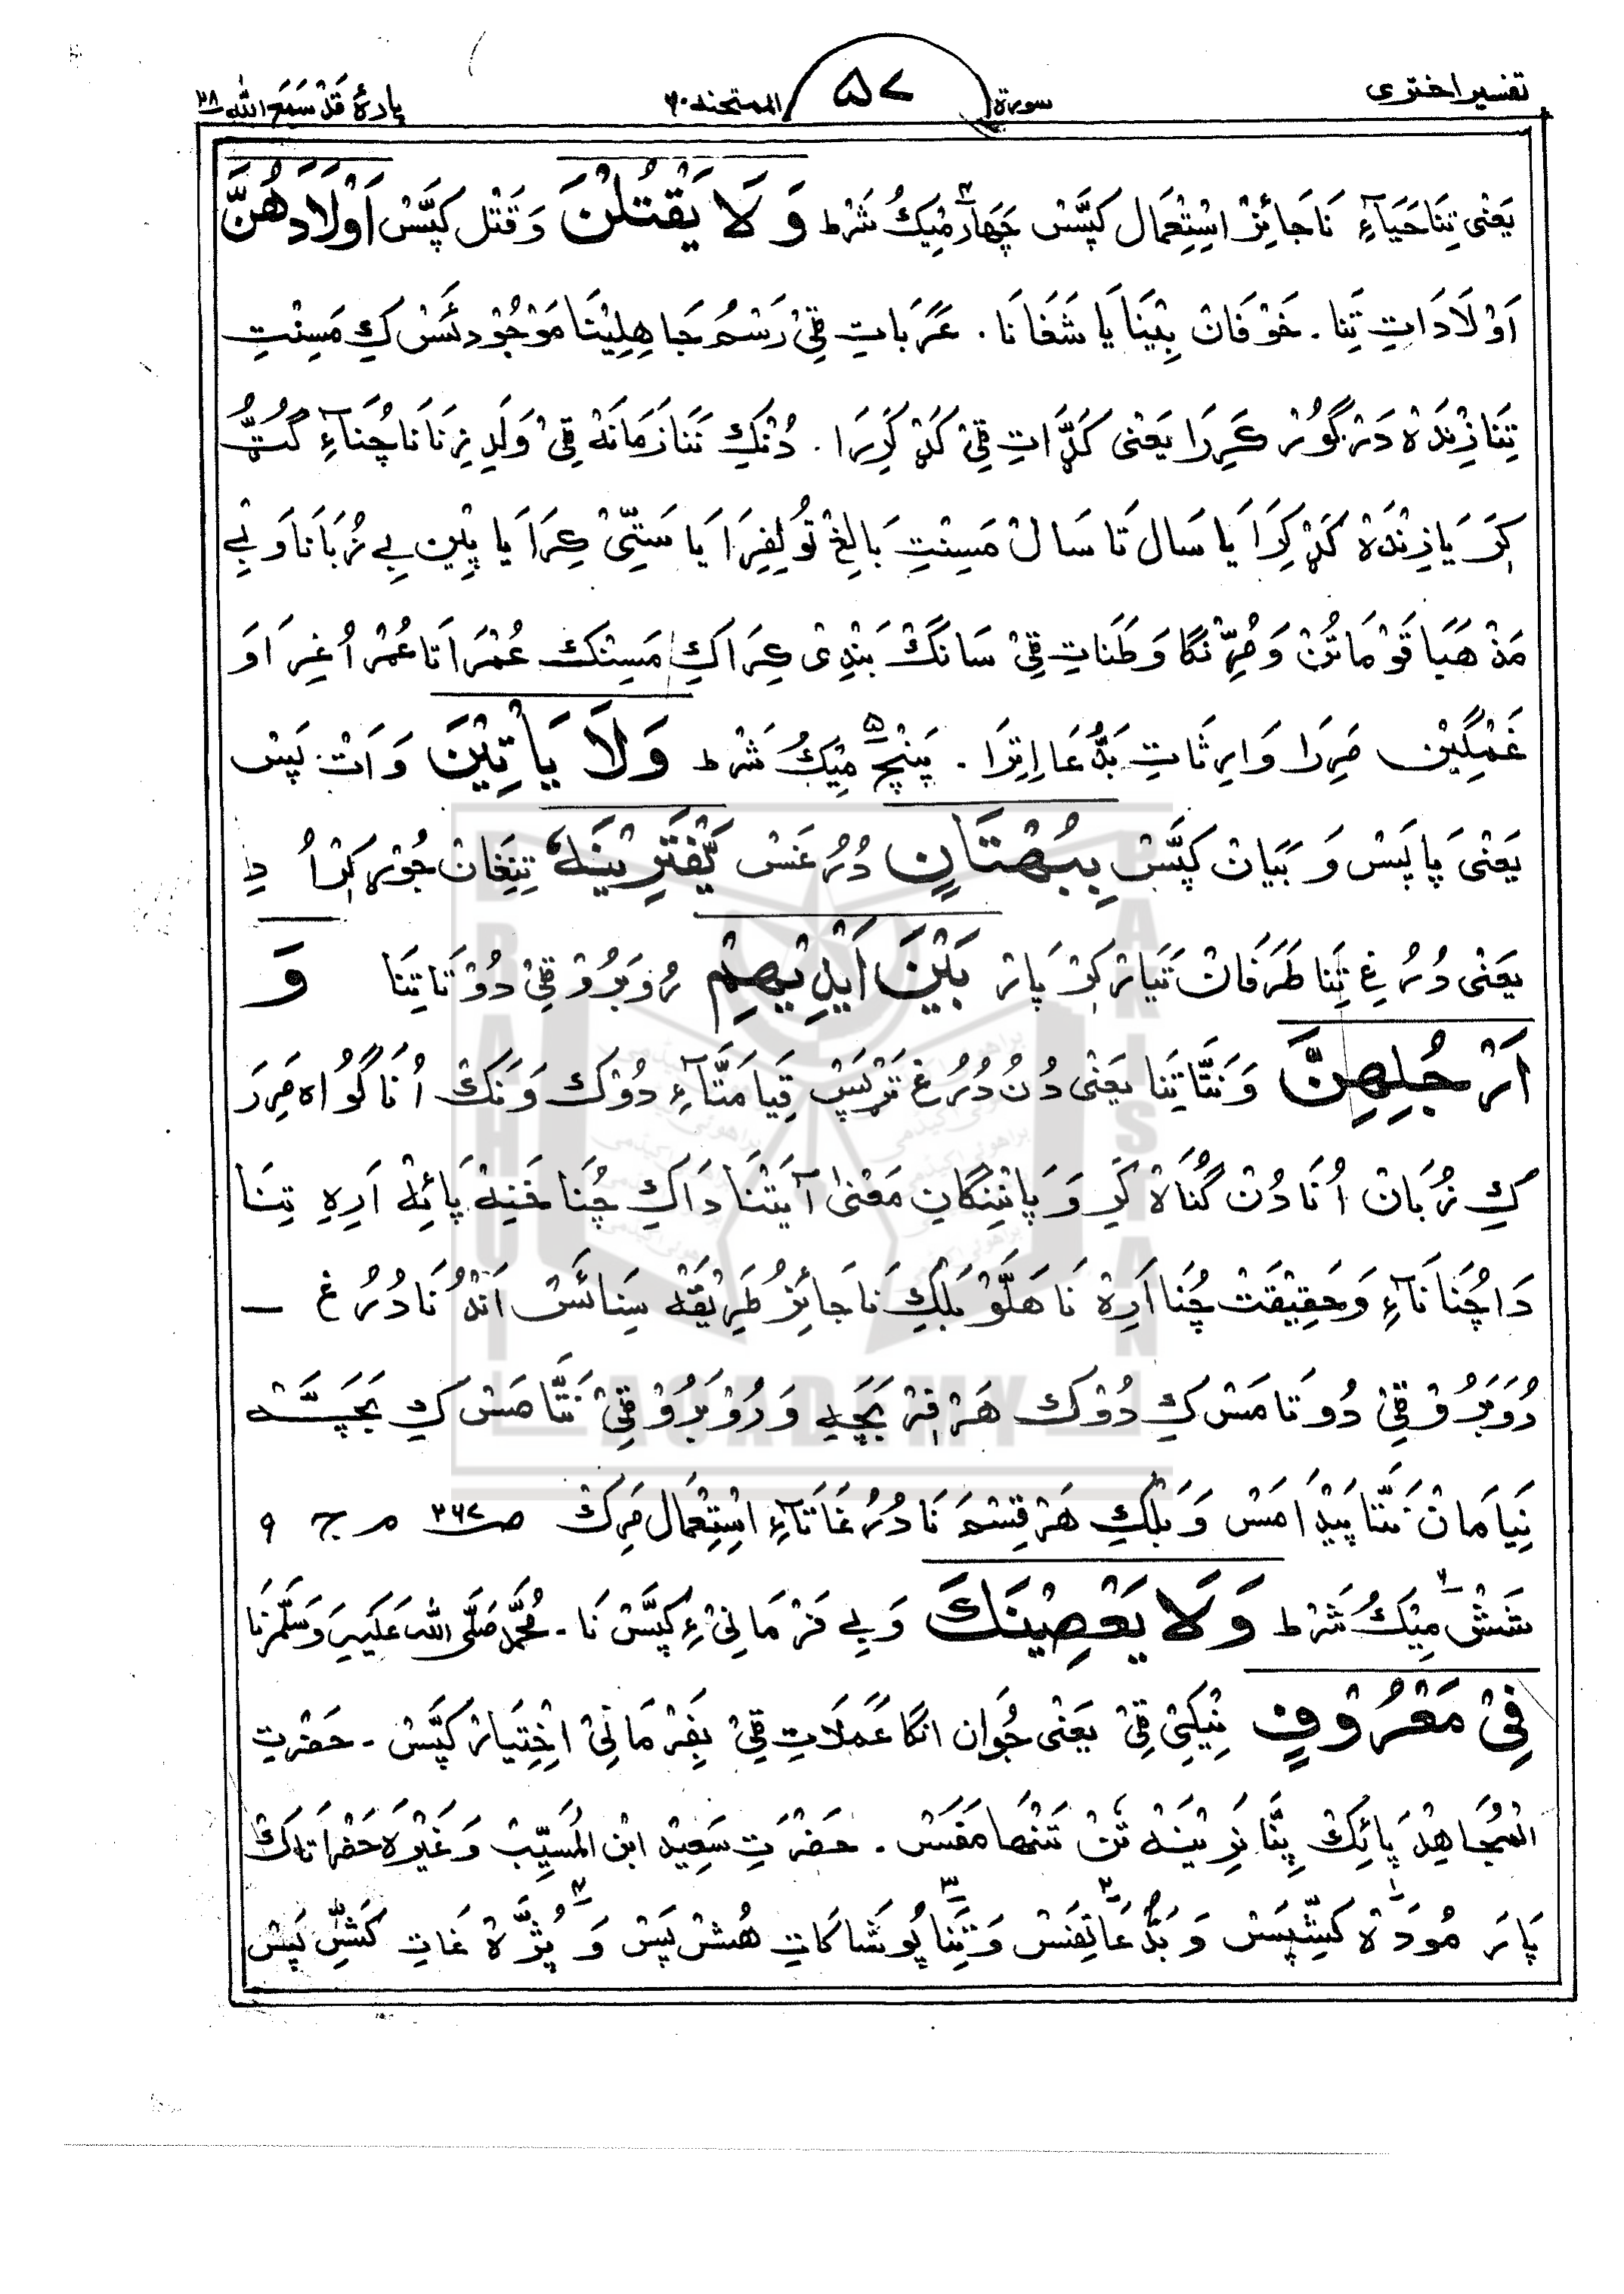 تفسیر اختری سورة ۵۷ الممتحنه ۶۰ پارۀ قد سمع الله ۲۸
یَعْنی تِنَا حَیَاءِ نَاجَائِزْ اسْتِعْمَال کپَّسْ چَهَارْمِیکُ شَرْط وَلَا یَقْتُلْنَ وَ قَتْل کپَّسْ اَوْلَادَهُنَّ
اَوْلَادَاتِ تِنَا۔ خَوْفَان بِیْنَا یَا شَغَانَا۔ عَرَبَاتِ ٹِیْ رَسْم جَاهِلِیْتَا مَوْجُود ئَسْ کِ مَسِنْتِ
تِنَا زِنْدَہ دَرْگُوْر کَرِرَا یَعْنی کَڈَّاتِ ٹِیْ کَڈْ کَرِرَا۔ دُنْکِ نَنَا زَمَانَہ ٹِیْ وَلَدِ زِنَانَا چُنَاءِ گُٹُّ
کِرَ یَا زِنْدَہ کَڈْ کِرَا یَا سَال تَا سَال مَسِنْتِ بَالِغْ تُولِفِرَا یَا سَتِّیْ کِرَا یَا پِیْن بے زُبَانَا وَ بے
مَذْهَبَا قَوْمَاتُن وَ مُرِّنْگَا وَطَنَاتِ ٹِیْ سَانْگْ بَنْدِی کِرَا کِ مَسِنْک عُمْرَاتَا عُمْرُ اُغِرَا وَ
غَمْگِیْن مَرِرَا وَارِثَاتِ بَدُّعَا اِتِرَا۔ پَنْچْ ۵ مِیْکُ شَرْط وَلَا یَاْتِیْنَ وَ اَتْ پَسْ
یَعْنی پَاپَسْ وَ بَیَان کپَّسْ بِبُهْتَانٍ دُرُغَسْ یَّفْتَرِیْنَهٗ تِنِغَانْ جُوْر کَرَا دِ
یَعْنی دُرُغِ تِنَا طَرَفَانْ تَیَار کَرْ پَار بَیْنَ اَیْدِیْهِمْ رُوبَرُو ٹِیْ دُوْتَا تِنَا وَ
اَرْجُلِهِنَّ وَ نَتَّا تِنَا یَعْنی دُنْ دُرُغ تَرَّپَسْ قِیَامَتَّاءِ دُوْک وَ نَتک اُنَا گُوَاه مَرِرَ
کِ زُبَان اُنَا دُنْ گُنَاہ کَرِ وَ پَانِنِگَان مَعْنٰی آیَتْنَا دَاکِ چُنَا خَنِنْہ پَائِہ اَرِہِ تِنَا
دَا چُنَا نَاءِ وَ حَقِیْقَتْ چُنَا اَرِہ نَا هَلَّوْ بَلکِ نَاجَائِز طَرِیْقَہ سِنَا ئَسْ اَنْدُنَا دُرُغ ــ
رُوَبَرُوْ ٹِیْ دُوتَا مَسْ کِ دُوْک هَرْفِر بَچَّہِ وَ رُوْبَرُوْ ٹِیْ نَتَّا مَسْ کِ بَچَّہ
نِیَامَانْ نَتَّا پَیْدَا مَسْ وَ بَلْکِ هَرْ قِسْمَ نَا دُرُغَاتَاءِ اسْتِعْمَال مَرِکْ صـ ۳۶۷ م ج ۹
شَشْ ۶ مِیْکُ شَرْط وَلَا یَعْصِیْنَكَ وَ بے فَرْمَانِیْ ءِ کپَّسْ نَا۔ مُحَمَّد صَلَّی اللہ عَلَیہِ وَسَلَّم نَا
فِیْ مَعْرُوْفٍ نِیْکِیْ ٹِیْ یَعْنی جُوَان انگا عَمَلَاتِ ٹِیْ بفِرْمَانِیْ اخْتِیَار کپَّسْ۔ حَضْرِتِ
المُجَاهِدْ پَائِکْ بِتَّا نَرِیْنَہ تَنْ تَنْهَا مَفَسْ۔ حَضْرَتِ سَعِیْد ابْن المُسَیِّبْ وَغَیْرہ حَضْرَاتَاک
پَارَ مُودَہ ۱ کَشِّپَسْ وَ بَدُّعَا ۲ تِفَسْ وَ تِنَا ۳ پُوشَاکَاتِ هُشْ پَسْ وَ ۴ پُژَّہ غَاتِ کَشِّ پَسْ